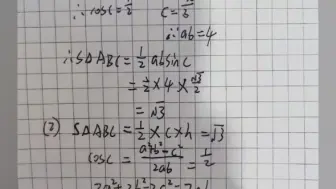 ∴cosC=1/2 C=π/3
∵ab=4
∴S△ABC=1/2absinC
=1/2×4×√3/2
=√3
(2) S△ABC=1/2×C×h=√3
cosC=(a²+b²-c²)/2ab=1/2